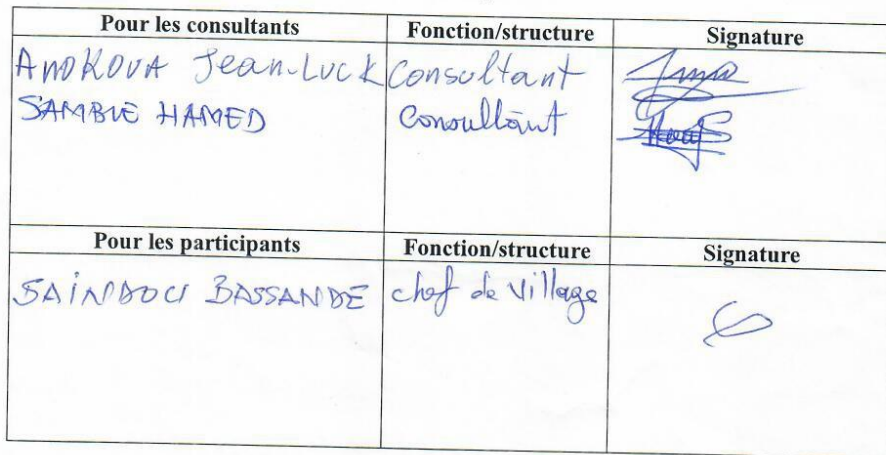 Pour les consultants Fonction/structure Signature
AMOKOUA Jean-Luck Consultant
SAMBIE HAMED Consultant
Pour les participants Fonction/structure Signature
BASSANDE chef de village